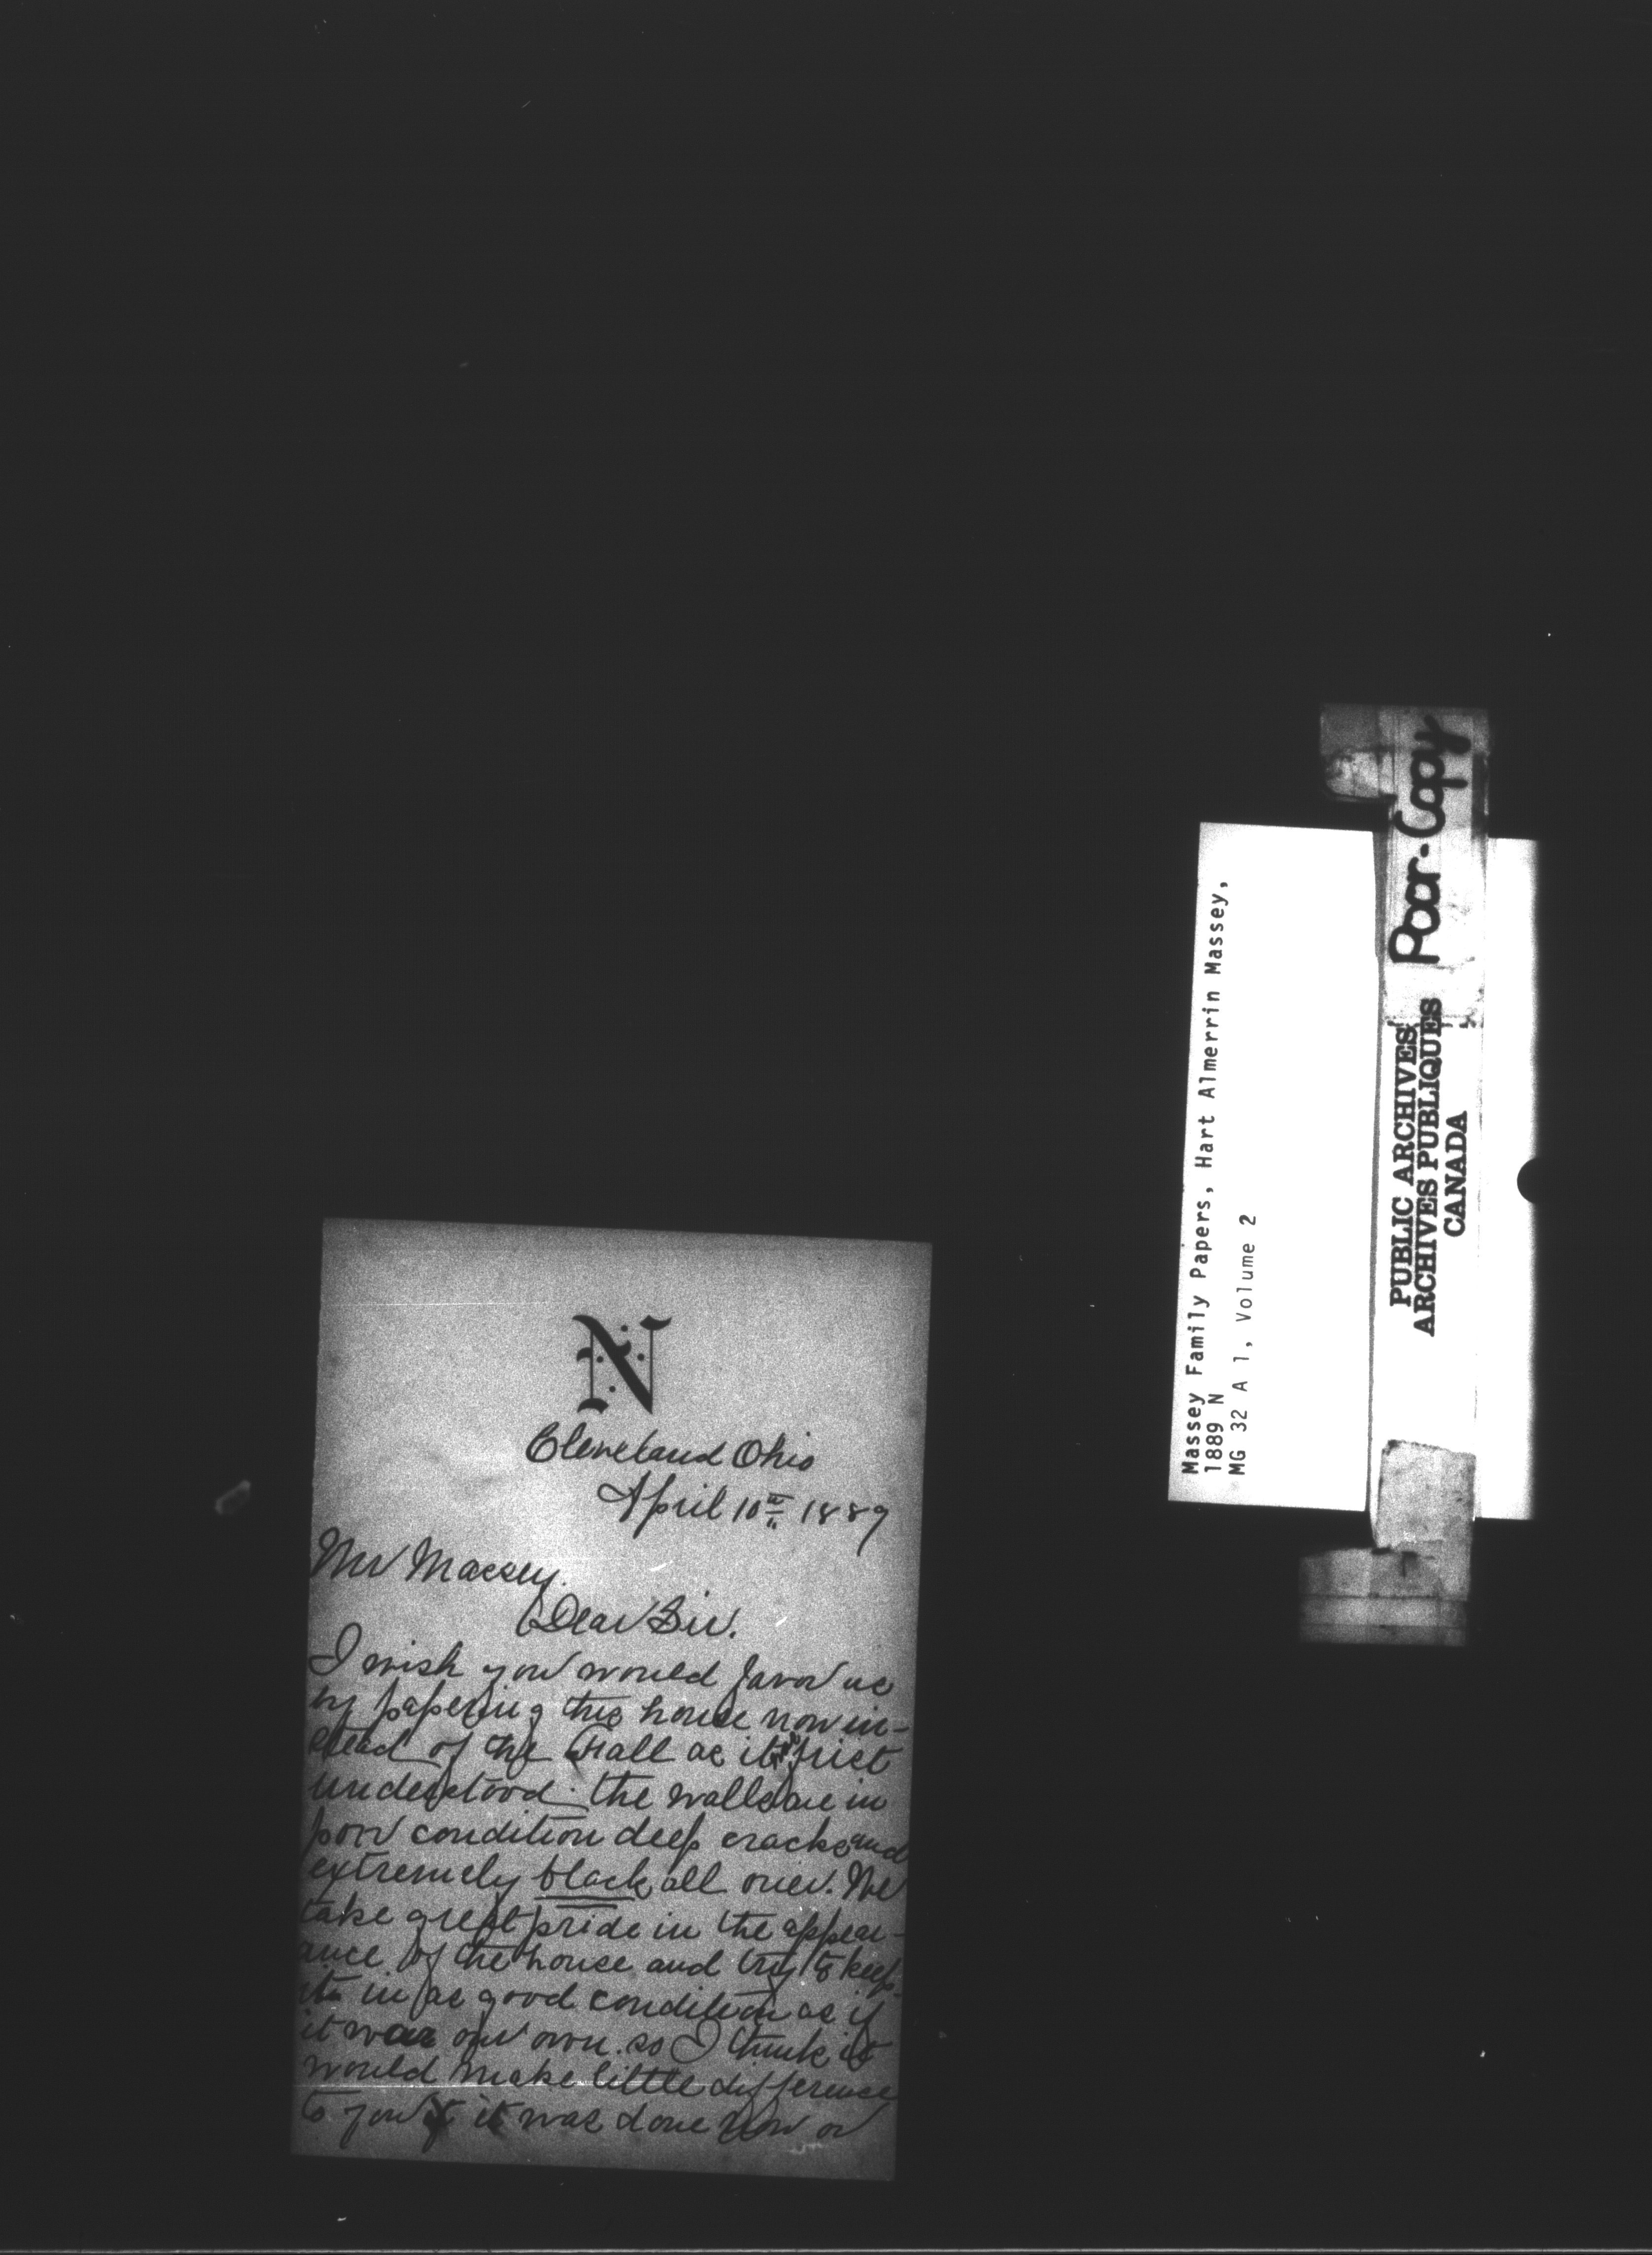 N
Cleveland Ohio
April 10th 1889
Mr Massey.
Dear Sir.
I wish you would favor us
by papering this house now in-
stead of the Fall as it was first
understood. the walls are in
poor condition deep cracks and
extremely black all over. We
take great pride in the appear-
ance of the house and try to keep
it in as good condition as if
it was our own. so I think it
would make little difference
to you if it was done now or
Massey Family Papers, Hart Almerrin Massey,
1889 N
MG 32 A 1, Volume 2
Poor-Copy
PUBLIC ARCHIVES
ARCHIVES PUBLIQUES
CANADA